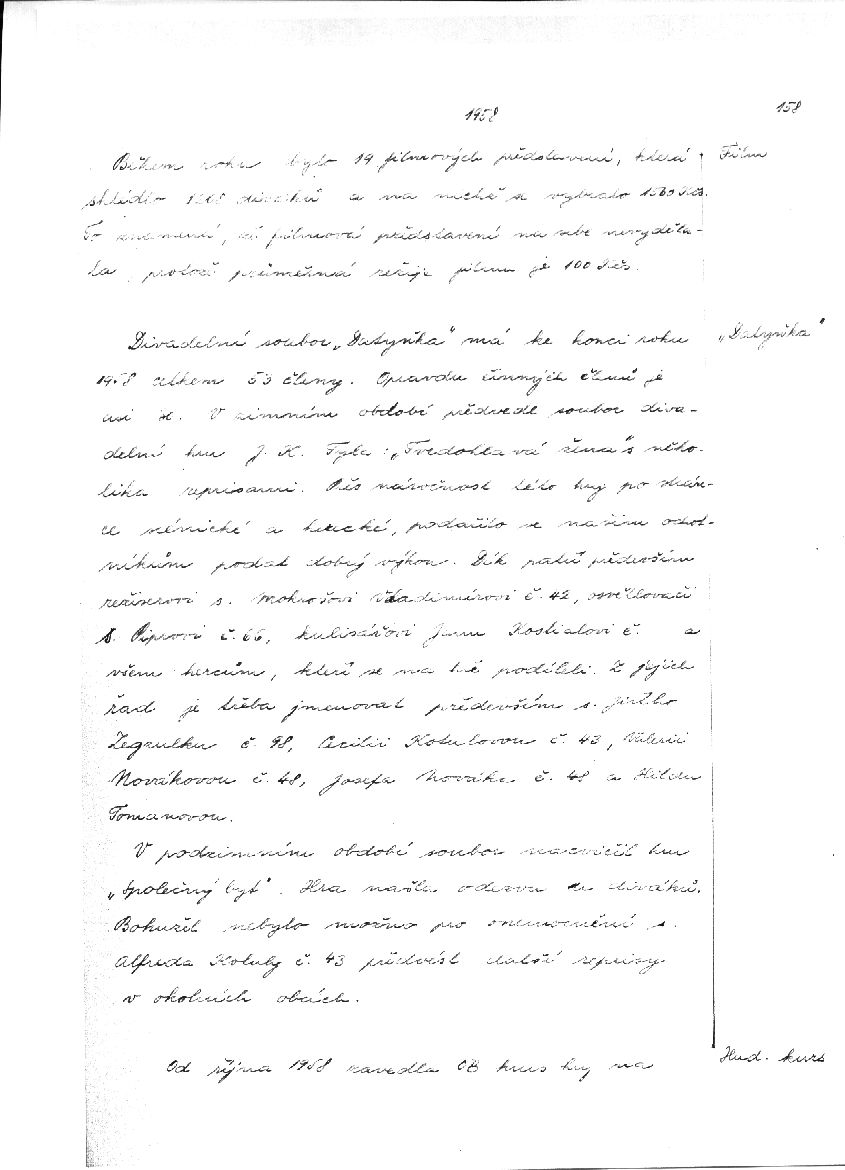 1958
158
Během roku bylo 19 filmových představení, která
Film
shlédlo diváků a na nichž se vybralo 1580 Kčs.
To znamená, že filmová představení na sebe nevyděla-
la, protože průměrná režije filmu je 100 Kčs.
Divadelní soubor „Datyňka" má ke konci roku
„Datyňka"
1958 celkem 53 členy. Opravdu činných členů je
asi V zimním období předvedl soubor diva-
delní hru J. K. Tyla: „Tvrdohlavá žena" s něko-
lika reprisami. Přes náročnost této hry po strán-
ce scénické a herecké, podařilo se našim ochot-
níkům podat dobrý výkon. Dík patří především
režiserovi s. Mokrošovi Vladimírovi č. 42, osvětlovači
s. Piprovi č. 66, kulisářovi Janu Kostialovi č. a
všem hercům, kteří se na hře podíleli. Z jejich
řad je třeba jmenovat především s. Jiřího
Zegzulku č. 98, Cecilii Kotulovou č. 43, Valerii
Novákovou č. 48, Josefa Nováka č. 48 a Hildu
Tomanovou.
V podzimním období soubor nacvičil hru
„Společný byt". Hra našla odezvu u diváků.
Bohužel nebylo možno pro onemocnění s.
Alfreda Kotuly č. 43 předvést další reprisy
v okolních obcích.
Od října 1958 zavedla OB kurs hry na
Hud. kurs